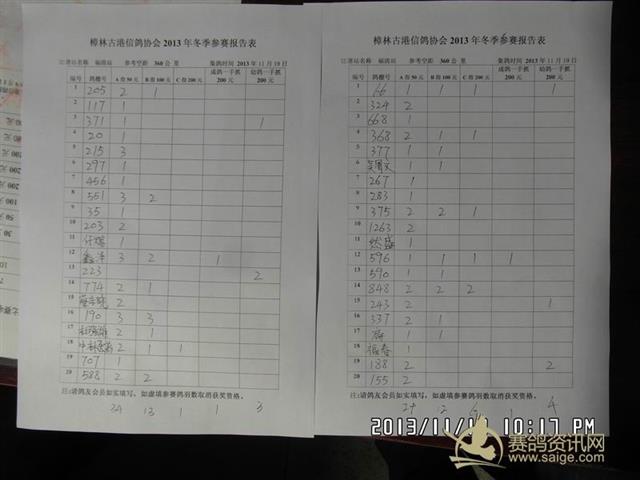 樟林古港信鸽协会 2013 年冬季参赛报告表
归巢站名称 福清站 参考空距 360 公里 集鸽时间 2013 年 11 月 19 日
编号 鸽棚号 A 组 50 元 B 组 100 元 C 组 200 元 成鸽一手抓 200 元 幼鸽一手抓 200 元
1 205 2 1
2 117 1
3 371 1 1
4 20 1
5 215 3
6 297 1
7 456 1
8 551 3 2
9 35 1
10 203 2
11 1
12 3 2 1
13 223 2
14 774 2 1
15 2
16 190 3 3
17 2 1
18 2 1 1
19 707 1
20 588 2 2
注:请鸽友会员如实填写,如虚填参赛鸽羽数取消获奖资格。
34 13 1 1 3
樟林古港信鸽协会 2013 年冬季参赛报告表
站名称 福清站 参考空距 360 公里 集鸽时间 2013 年 11 月 19 日
编号 鸽棚号 A 组 50 元 B 组 100 元 C 组 200 元 成鸽一手抓 200 元 幼鸽一手抓 200 元
1 66 1 1 1 1
2 324 2
3 668 1
4 368 2 1 1
5 377 1 1
6 1 1
7 267 1
8 283 1
9 375 2 2 1
10 1263 2
11 1
12 596 1 1 1 1
13 590 1 1
14 848 2 2 2
15 243 2 1
16 337 2 1
17 1 1
18 福春 1
19 188 2 2
20 155 2
注:请鸽友会员如实填写,如虚填参赛鸽羽数取消获奖资格。
29 12 1 4
2013/11/1 10:17 PM
赛鸽资讯网
www.saige.com